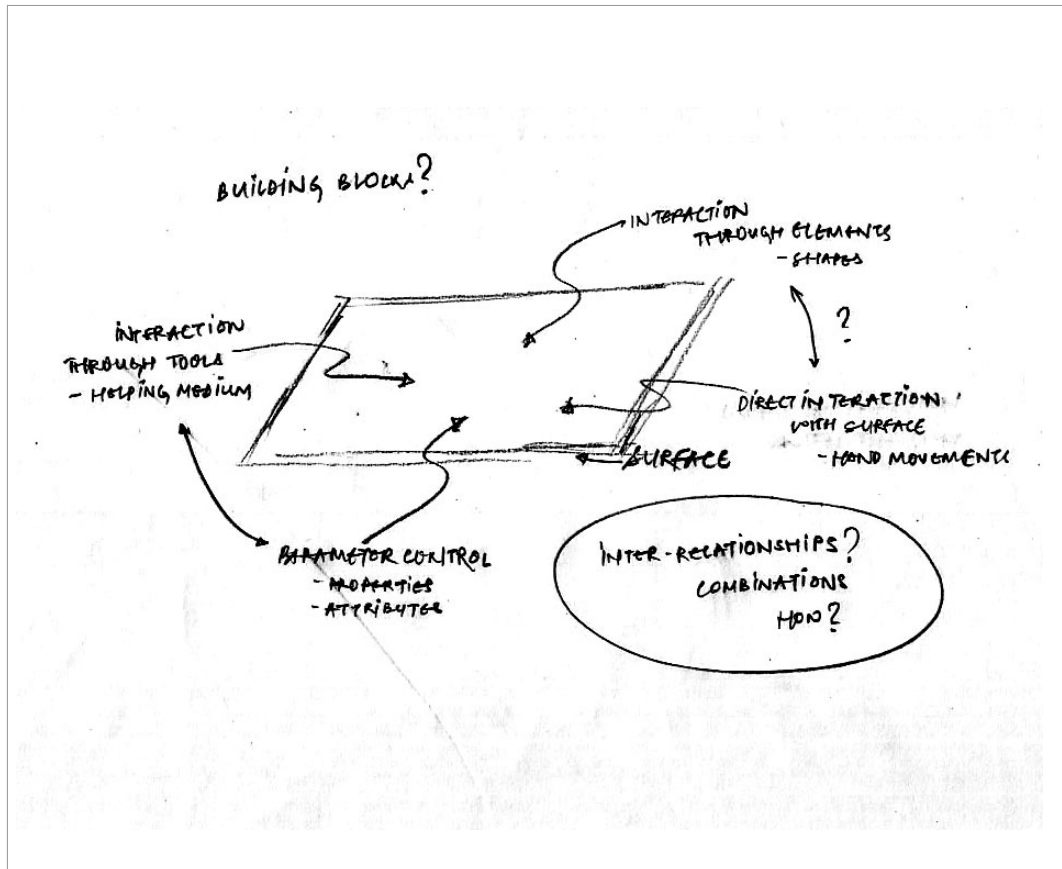 BUILDING BLOCKS?
INTERACTION
THROUGH ELEMENTS
- SHAPES
?
INTERACTION
THROUGH TOOLS
- HELPING MEDIUM
DIRECT INTERACTION
WITH SURFACE
- HAND MOVEMENTS
SURFACE
PARAMETER CONTROL
- PROPERTIES
- ATTRIBUTES
INTER-RELATIONSHIPS?
COMBINATIONS
HOW?